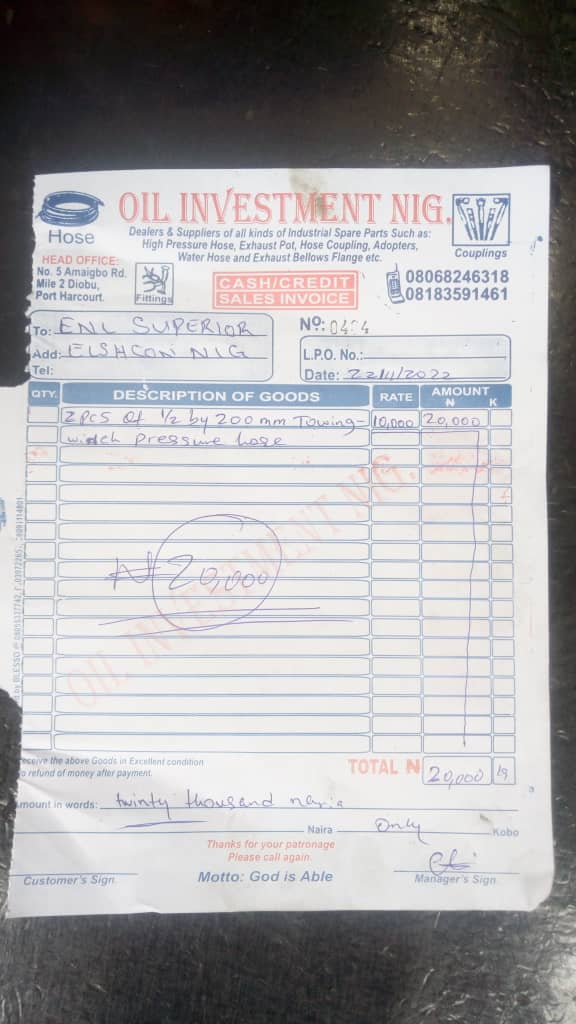 OIL INVESTMENT NIG.
Hose
Dealers & Suppliers of all kinds of Industrial Spare Parts Such as:
High Pressure Hose, Exhaust Pot, Hose Coupling, Adopters,
Water Hose and Exhaust Bellows Flange etc.
Couplings
HEAD OFFICE:
No. 5 Amaigbo Rd.
Mile 2 Diobu,
Port Harcourt.
Fittings
CASH/CREDIT
SALES INVOICE
08068246318
08183591461
To: ENL SUPERIOR
Add: ELSHCON NIG
Tel:
Nº:
L.P.O. No.:
Date: 22/11/2022
QTY. DESCRIPTION OF GOODS RATE AMOUNT
N K
2 pcs of 1/2 by 200 mm Towing- 10,000 20,000
winch pressure hose
OIL INVESTMENT NIG.
₦20,000
by BLESSO
eceive the above Goods in Excellent condition
o refund of money after payment.
TOTAL N 20,000
mount in words: twinty thousand naria
Naira Only Kobo
Thanks for your patronage
Please call again.
Customer's Sign. Motto: God is Able Manager's Sign.